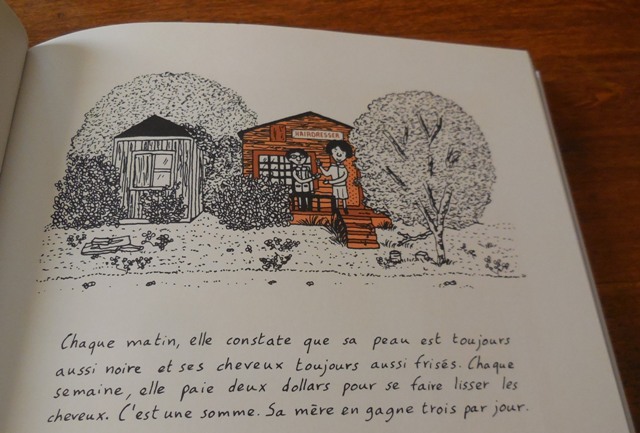 HAIRDRESSER
Chaque matin, elle constate que sa peau est toujours
aussi noire et ses cheveux toujours aussi frisés. Chaque
semaine, elle paie deux dollars pour se faire lisser les
cheveux. C'est une somme. Sa mère en gagne trois par jour.